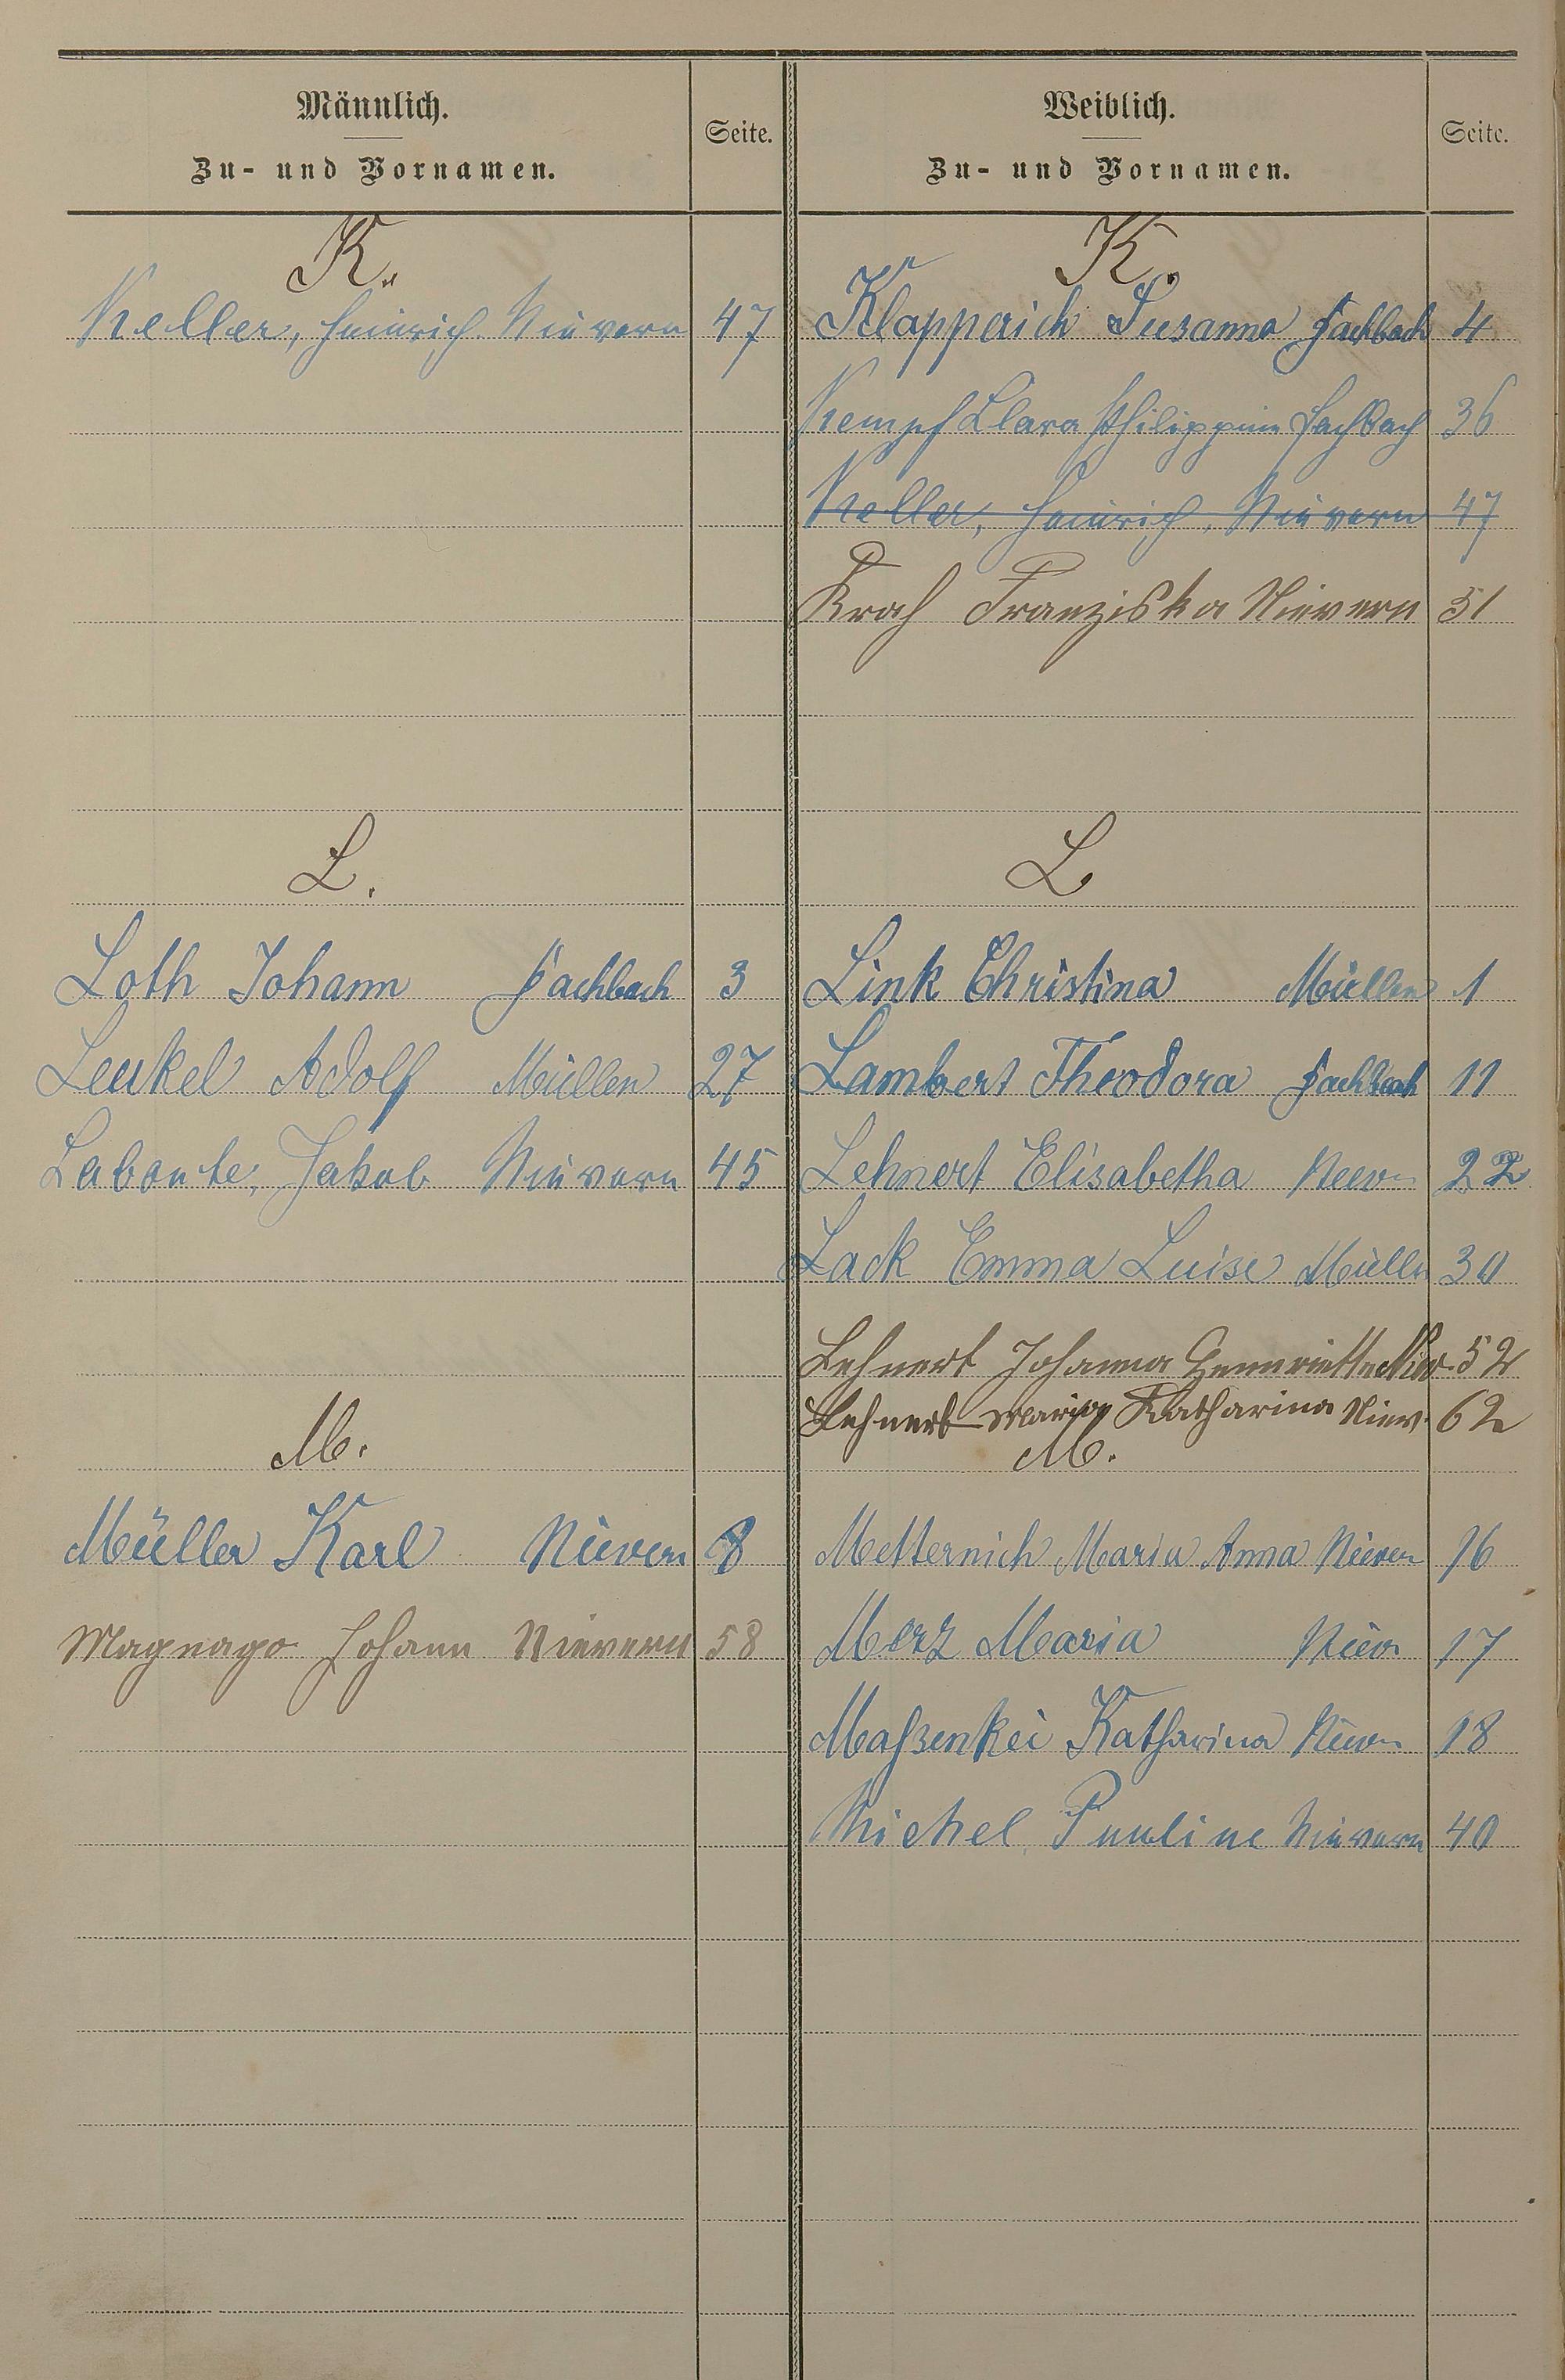 Männlich.
Zu- und Vornamen.
Seite.
K.
Keller, Heinrich. Nievern 47
L.
Loth Johann Fachbach 3
Leukel Adolf Müllen 27
Labonte, Jakob Nievern 45
M.
Müller Karl Nievern 8
Magnago Johann Nievern 58
Weiblich.
Zu- und Vornamen.
Seite.
K.
Klapperich Susanna Fachbach 4
Kempf Clara Philippine Fachbach 36
Keller, Heinrich, Nievern 47
Krah Franziska Nievern 51
L
Link Christina Müllen 1
Lambert Theodora Fachbach 11
Lehnert Elisabetha Nievn 22
Lack Emma Luise Mülln 30
Lehnert Johanna Henriette Niev. 52
Lehnert Maria Katharina Niev. 62
M.
Metternich Maria Anna Nievern 16
Merz Maria Niev. 17
Maßenkei Katharina Nievn 18
Michel Pauline Nievern 40